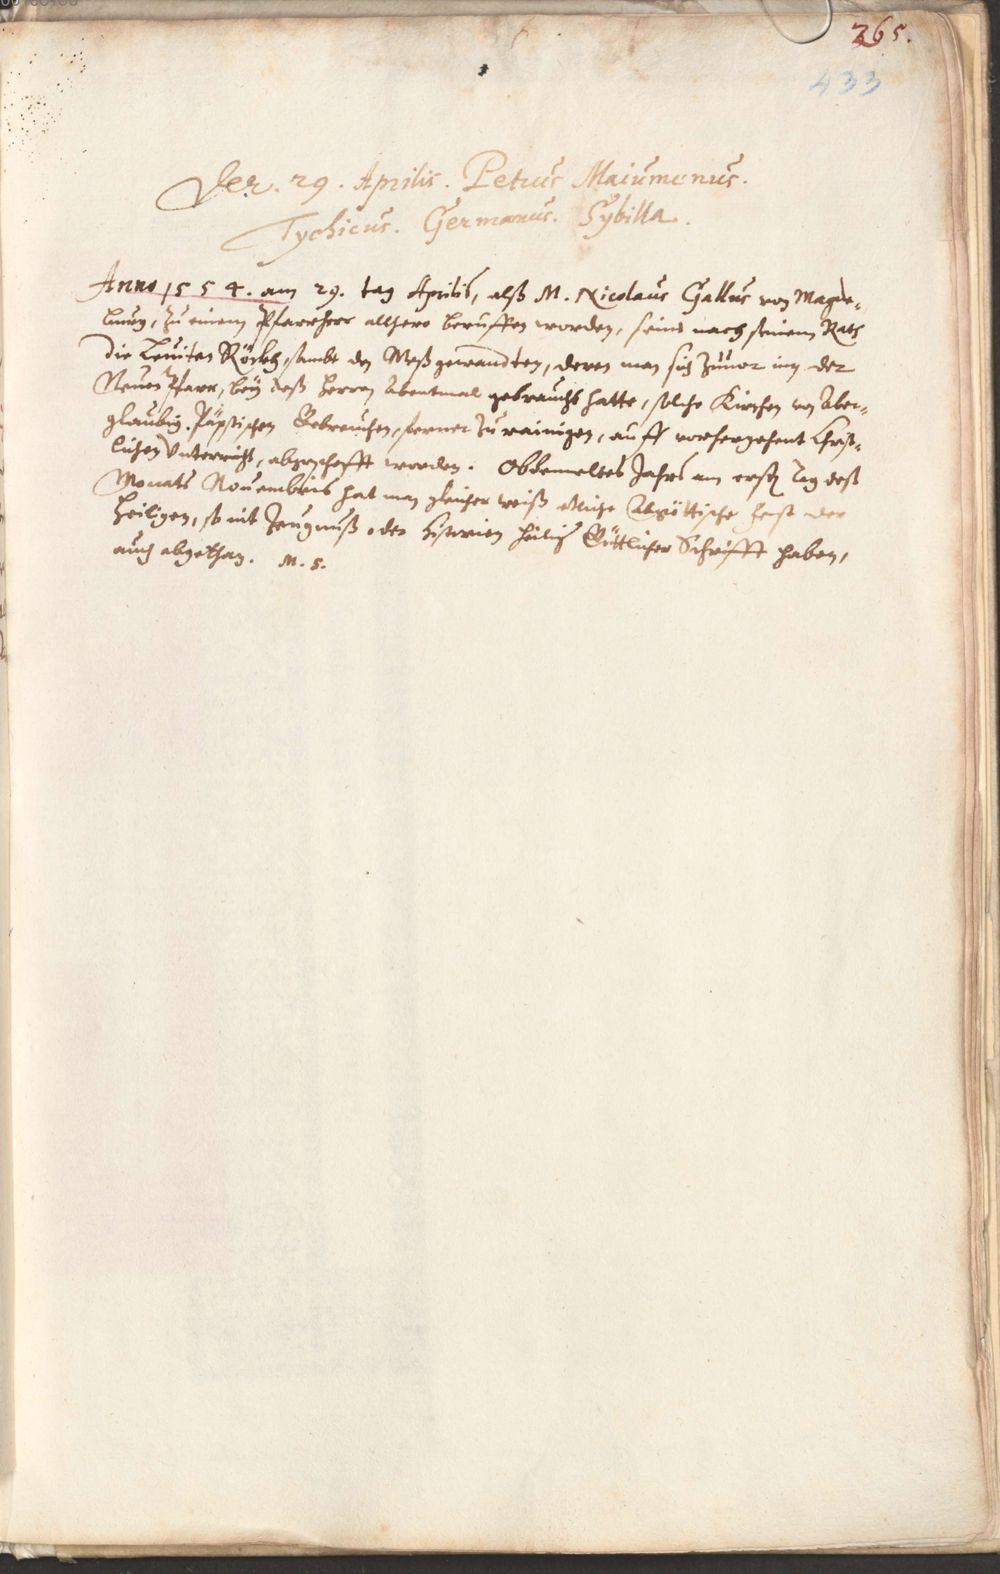 265.
433
Der. 29. Aprilis. Petrus Maiumenus.
Tychicus. Germanus. Sybilla.
Anno 1554. am 29. tag Aprilis, alß M. Nicolaus Gallus von Magde-
burg, zu einem Pfarrherr allhero beruffen worden, seind nach seinem Rath
die Leuiten Röckh, sambt den Meßgewandten, deren man sich zuuor inn der
Neuen Pfarr, beÿ deß Herrn Abentmal gebraucht hatte, solche Kirchen von Aber-
glaubig. Päpstischen Gebreuchen, ferner zu rainigen, auff vorhergehent Christ-
lichen Vnterricht, abgeschafft worden. Obbemeltes Jahrs am ersten tag deß
Monats Nouembris hat man gleicher weiß etliche Abgöttische fest der
Heiligen, so nit Zeugnuß oder Historien heilig Göttlicher Schrifft haben,
auch abgethan. M. S.